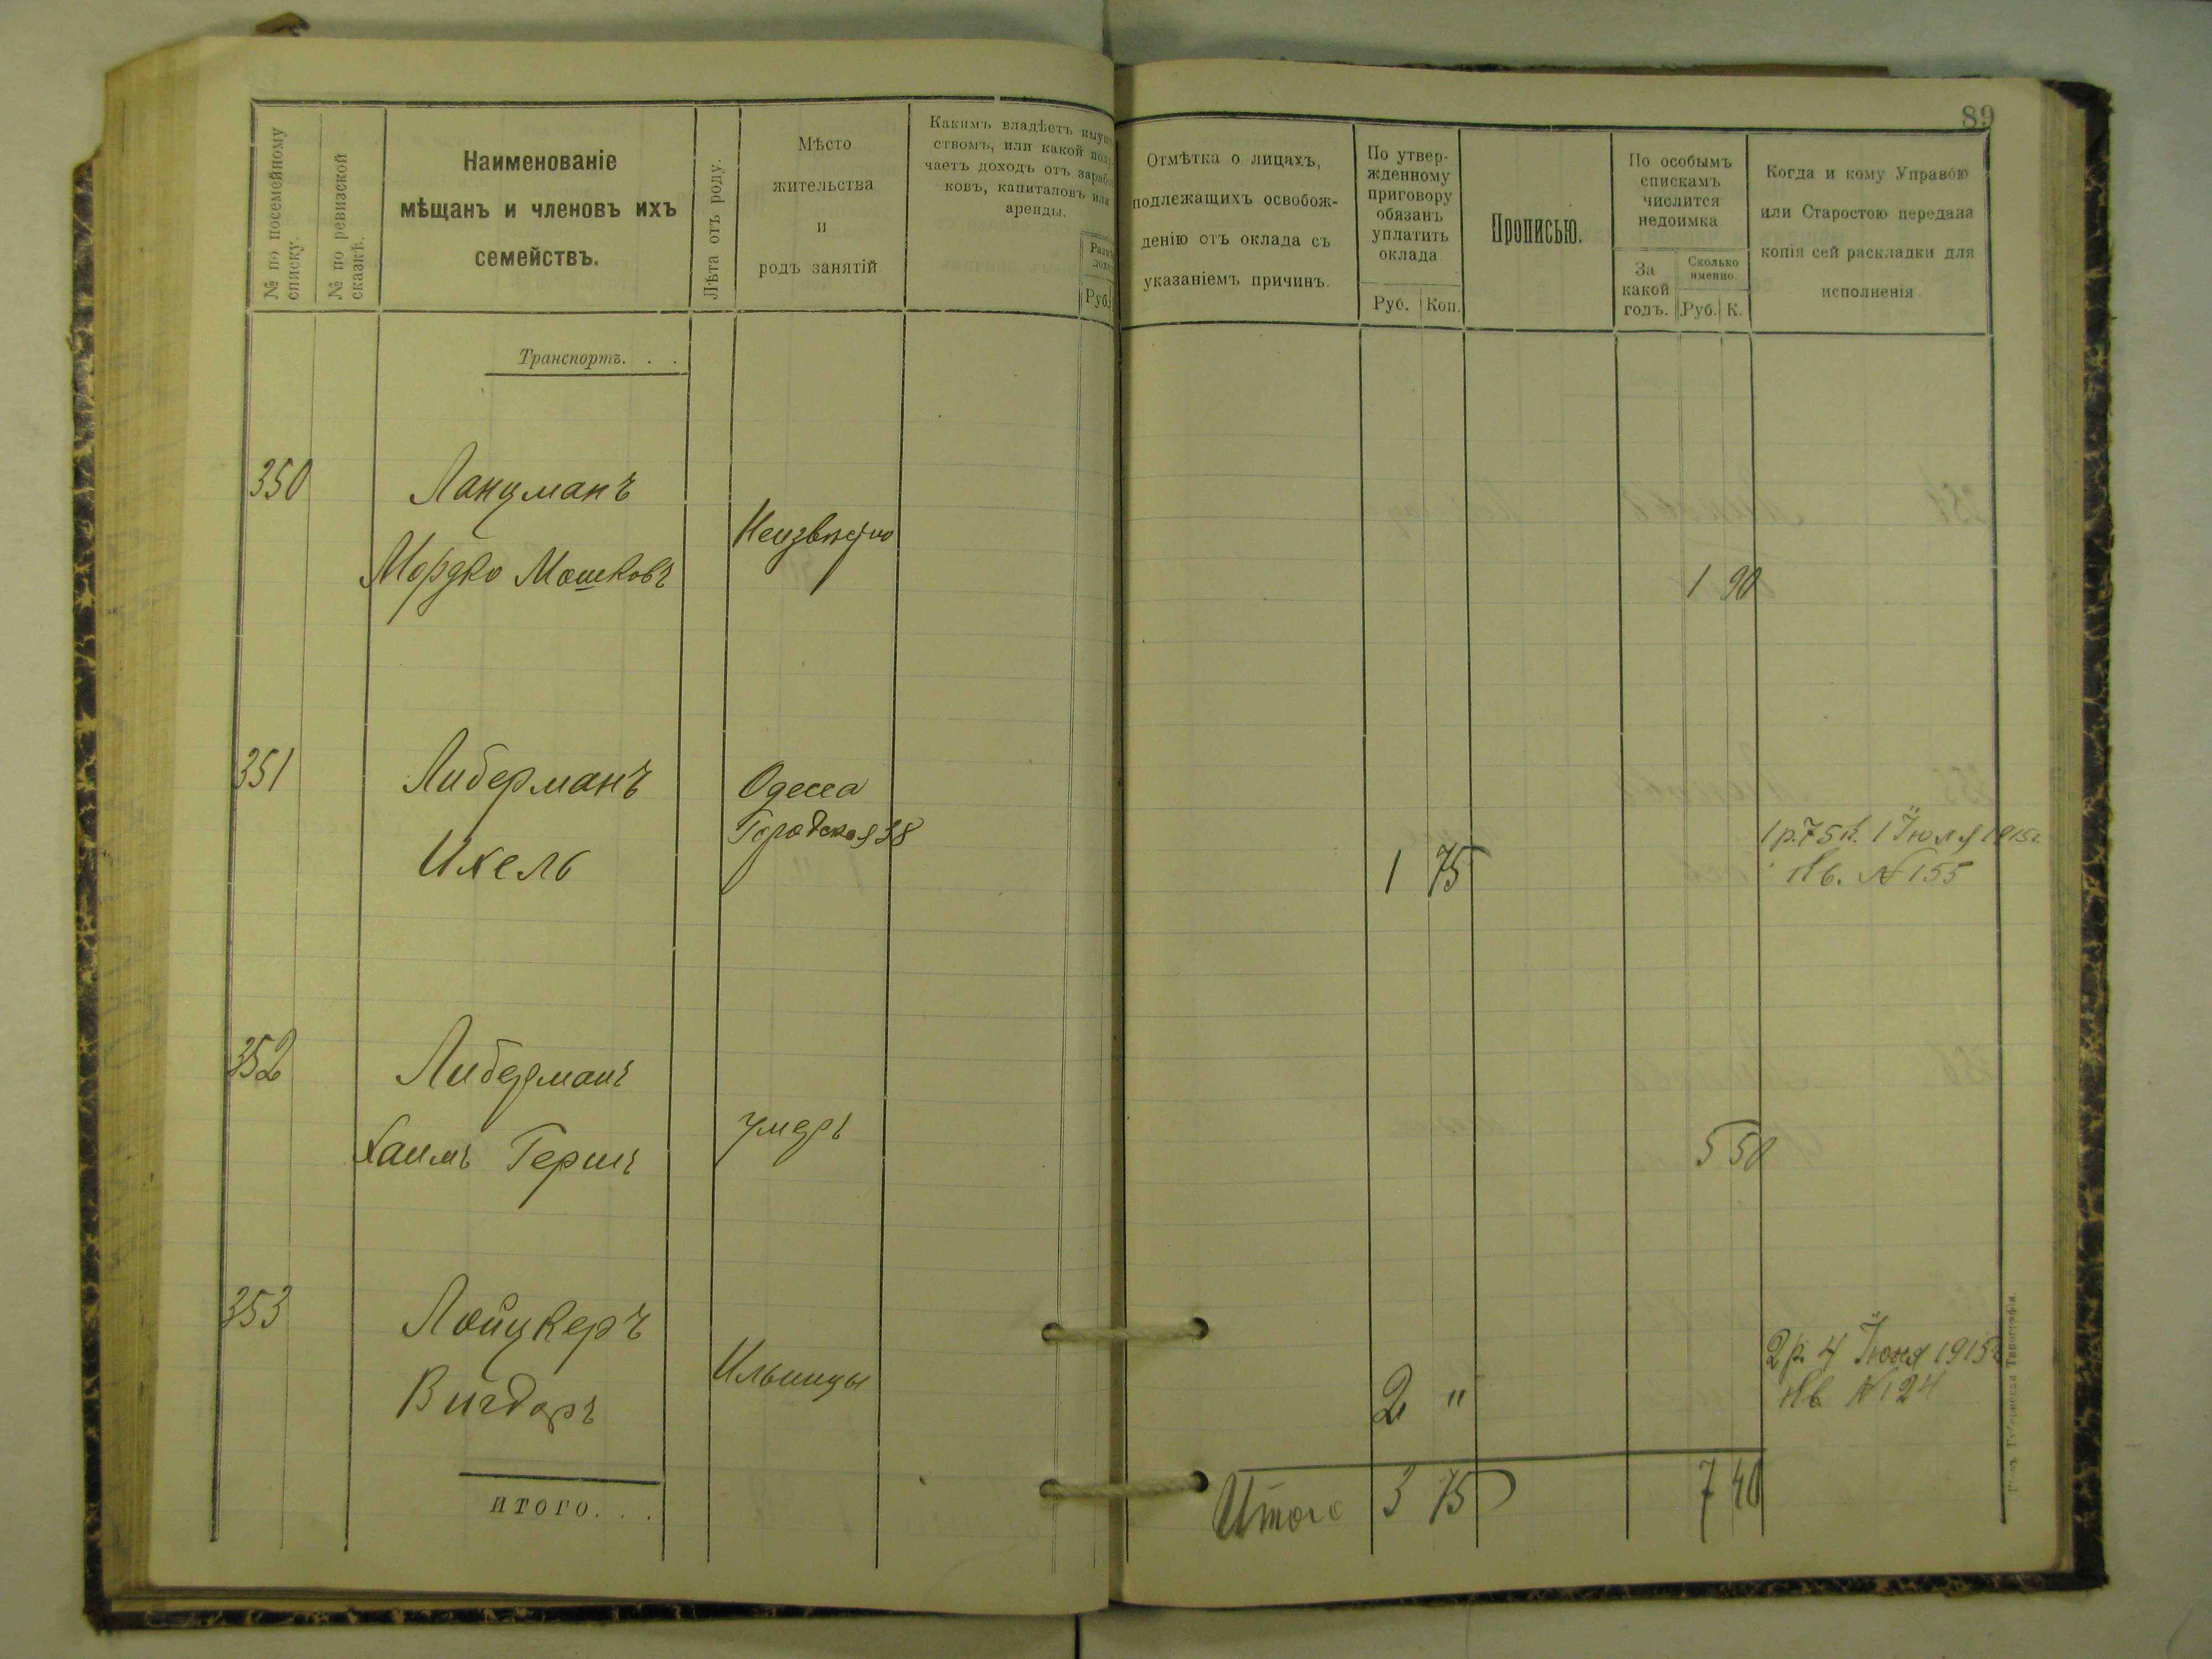 89
№ по посемейному
списку.
№ по ревизской
сказкѣ.
Наименованіе
мѣщанъ и членовъ ихъ
семействъ.
Лѣта отъ роду.
Мѣсто
жительства
и
родъ занятій
Какимъ владѣетъ имущ
ствомъ, или какой полу
чаетъ доходъ отъ зарабо
ковъ, капиталовъ или
аренды.
Руб.
Отмѣтка о лицахъ,
подлежащихъ освобож-
денію отъ оклада съ
указаніемъ причинъ.
По утвер-
жденному
приговору
обязанъ
уплатить
оклада
Руб. Коп.
Прописью.
По особымъ
спискамъ
числится
недоимка
За
какой
годъ.
Сколько
именно.
Руб. К.
Когда и кому Управою
или Старостою передана
копія сей раскладки для
исполненія
Транспортъ. . .
350 Ланцманъ
Неизвѣстно
Мордко Мошковъ 1 90
351 Либерманъ Одесса
Городская 38 1 р. 75 к. 1 Іюля 1915 г.
Ихель 1 75 Кв. № 155
352 Либерманъ
Хаимъ Гершъ умеръ 5 50
353 Лойцкеръ 2 р. 4 Іюня 1915 г.
Вигдоръ Ильинцы 2 " Кв. № 124
ИТОГО. . .
Итого 3 75 7 40